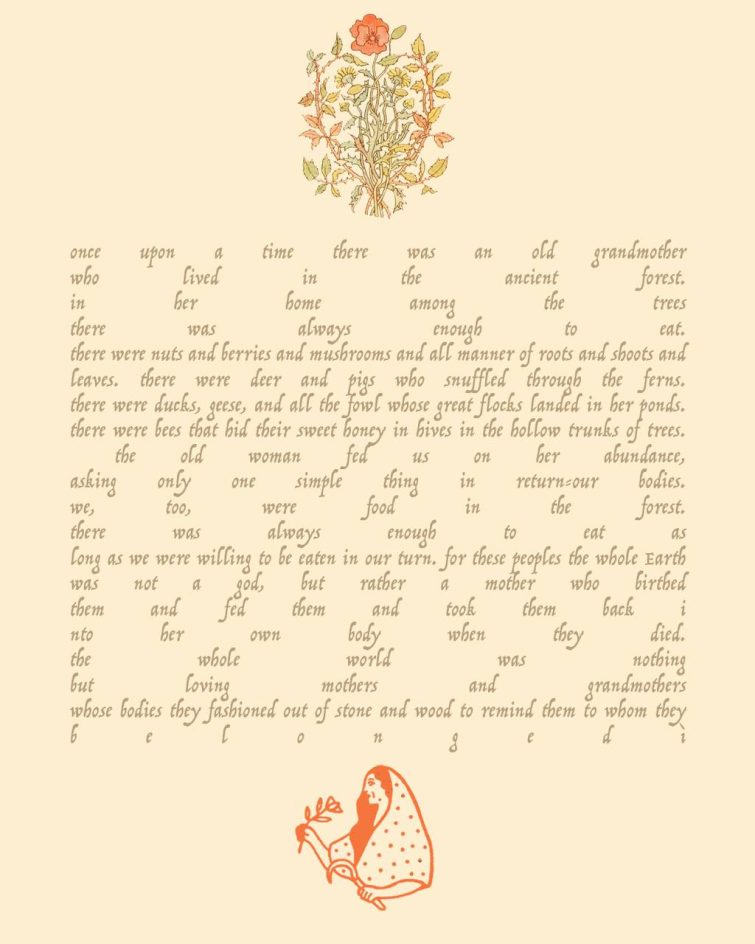 once upon a time there was an old grandmother
who lived in the ancient forest.
in her home among the trees
there was always enough to eat.
there were nuts and berries and mushrooms and all manner of roots and shoots and
leaves. there were deer and pigs who snuffled through the ferns.
there were ducks, geese, and all the fowl whose great flocks landed in her ponds.
there were bees that hid their sweet honey in hives in the hollow trunks of trees.
the old woman fed us on her abundance,
asking only one simple thing in return-our bodies.
we, too, were food in the forest.
there was always enough to eat as
long as we were willing to be eaten in our turn. for these peoples the whole Earth
was not a god, but rather a mother who birthed
them and fed them and took them back i
nto her own body when they died.
the whole world was nothing
but loving mothers and grandmothers
whose bodies they fashioned out of stone and wood to remind them to whom they
b e l o n g e d ì